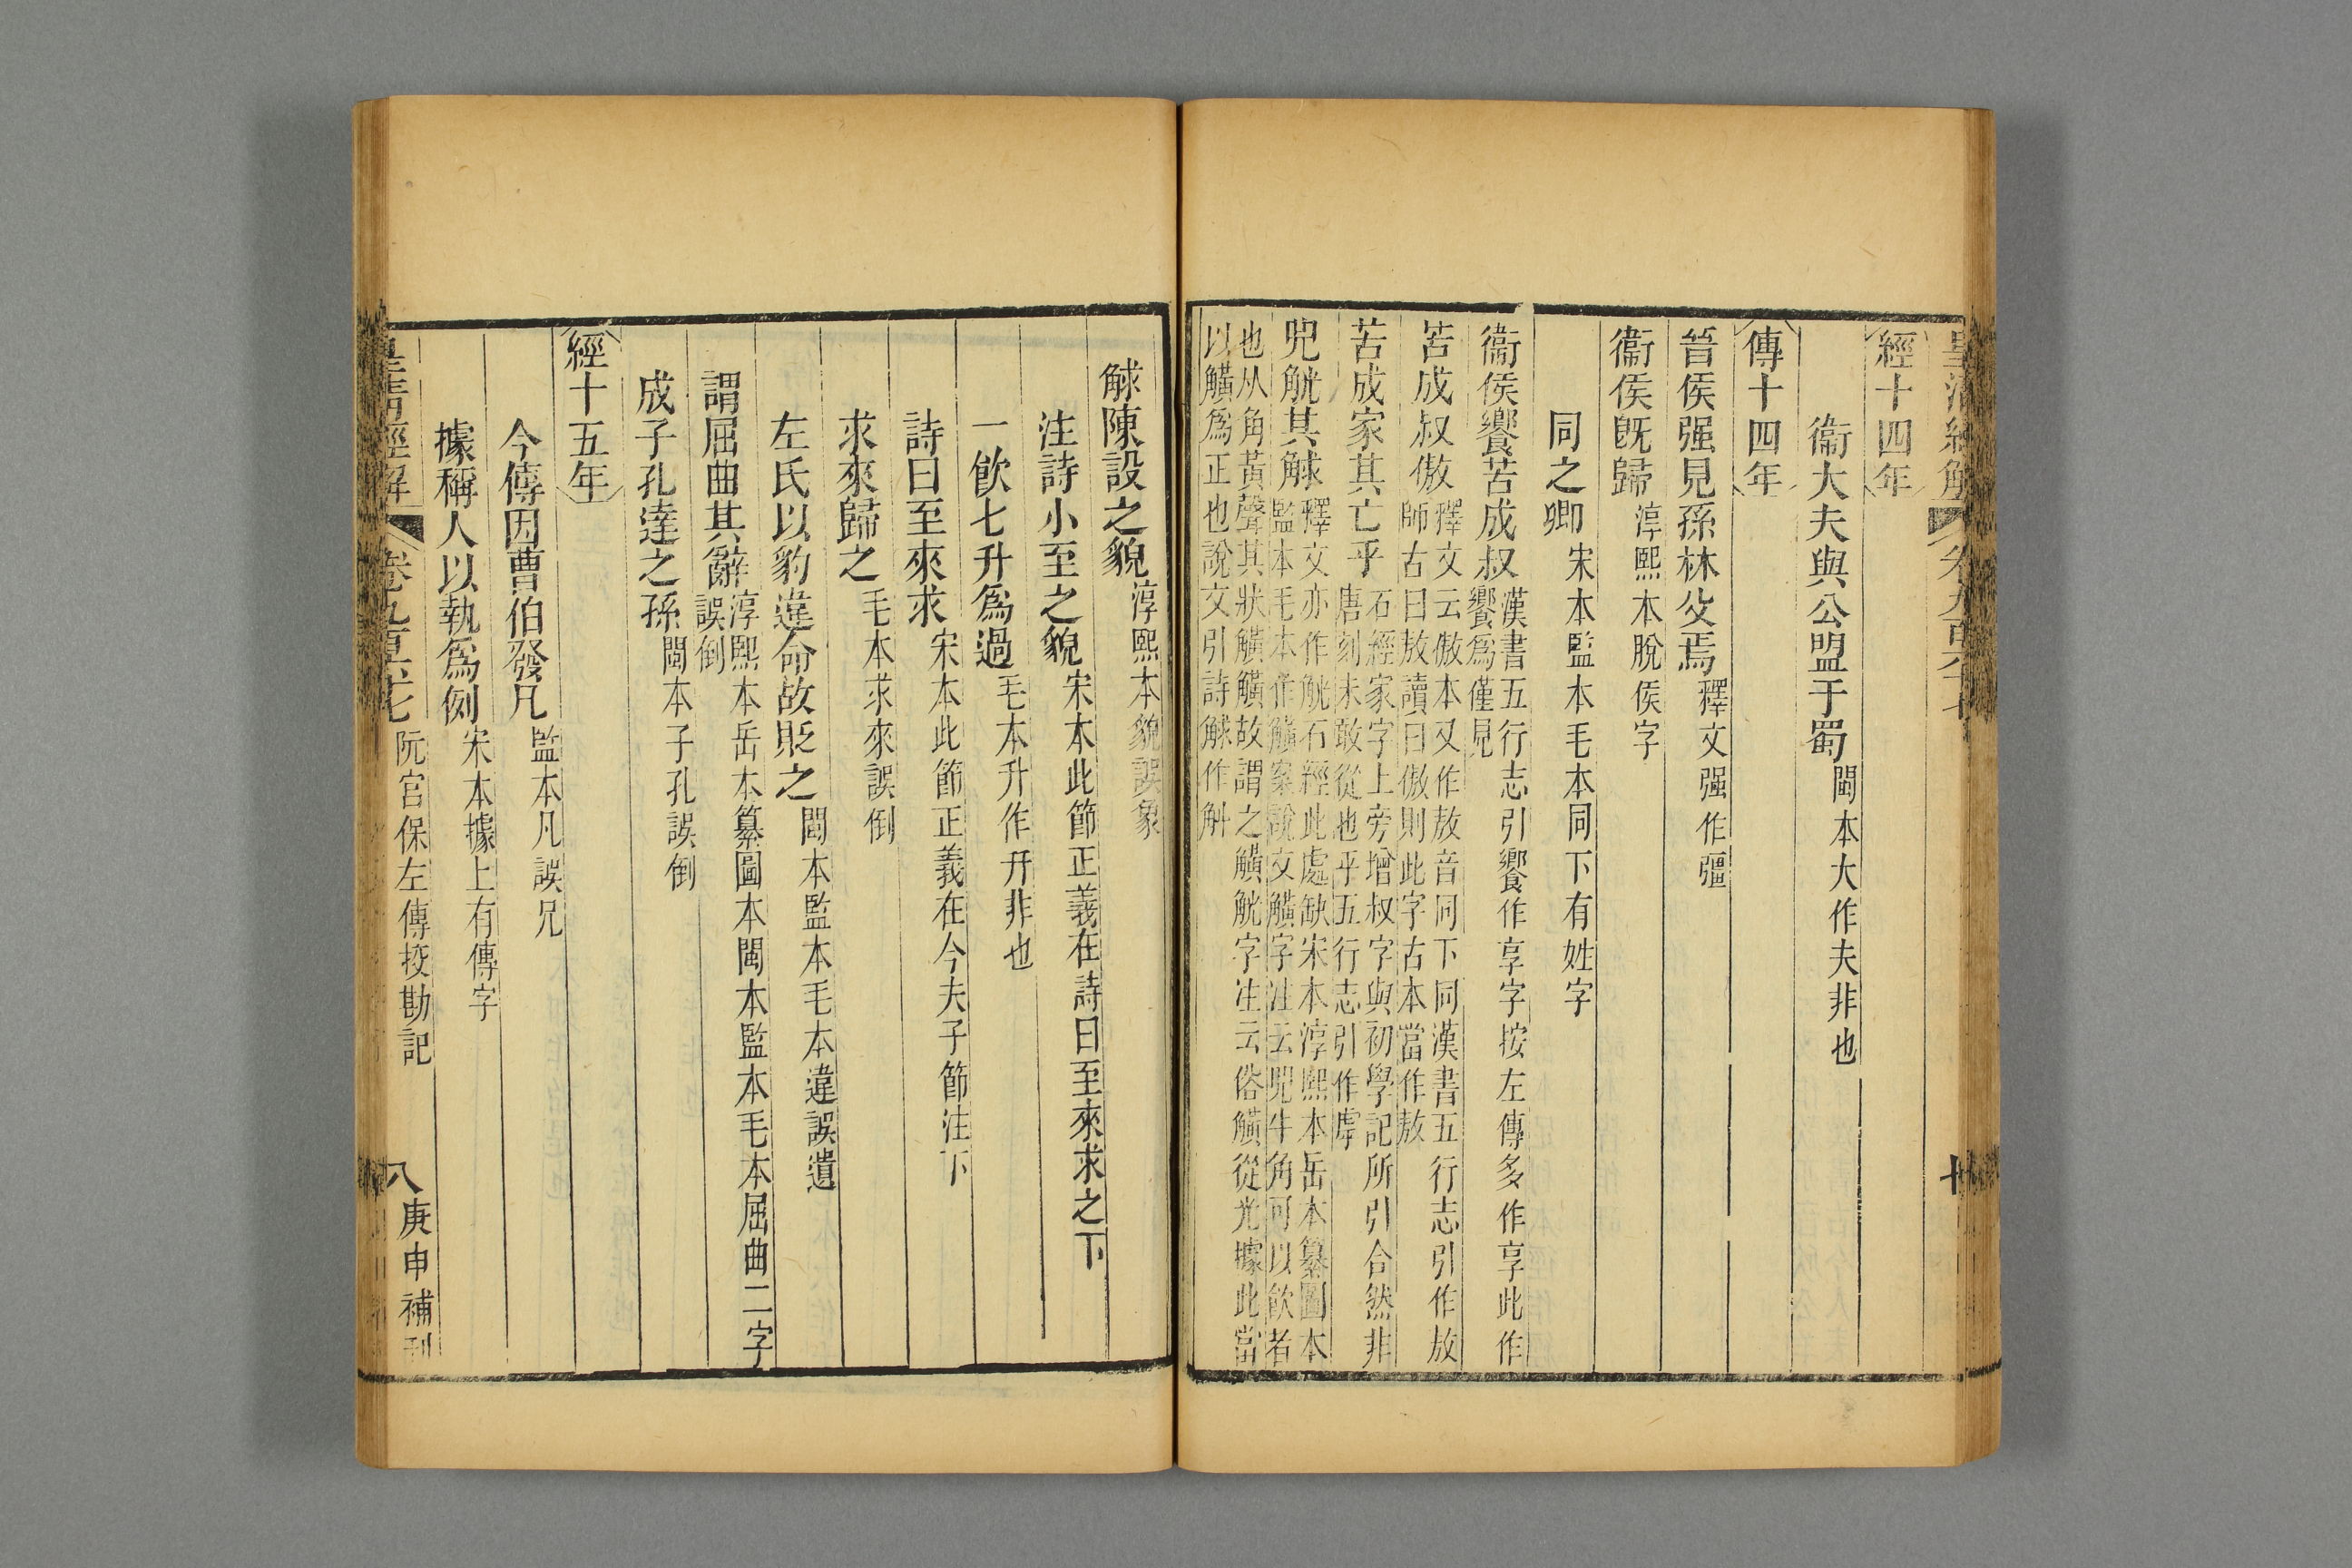 經十四年
衞大夫與公盟于蜀閩本大作夫非也
傳十四年
晉侯强見孫林父焉釋文强作彊
衞侯旣歸淳熙本脫侯字
同之卿宋本監本毛本同下有姓字
衞侯饗苦成叔漢書五行志引饗作享字按左傳多作享此作
饗爲僅見
苦成叔傲釋文云傲本又作敖音同下同漢書五行志引作敖
師古曰敖讀曰傲則此字古本當作敖
苦成家其亡乎石經家字上旁增叔字與初學記所引合然非
唐刻未敢從也乎五行志引作虖
兕觥其觩釋文亦作觥石經此處缺宋本淳熙本岳本纂圖本
監本毛本作觵案說文觵字注云兕牛角可以飮者
也从角黃聲其狀觵觵故謂之觵觥字注云俗觵從光據此當
以觵爲正也說文引詩觩作斛
觩陳設之貌淳熙本貌誤象
注詩小至之貌宋本此節正義在詩曰至來求之下
一飮七升爲過毛本升作幵非也
詩曰至來求宋本此節正義在今夫子節注下
求來歸之毛本求來誤倒
左氏以豹違命故貶之閩本監本毛本違誤遺
謂屈曲其辭淳熙本岳本纂圖本閩本監本毛本屈曲二字
誤倒
成子孔達之孫閩本子孔誤倒
經十五年
今傳因曹伯發凡監本凡誤兄
據稱人以執爲例宋本據上有傳字
皇清經解 卷九百六七 阮宮保左傳挍勘記 八 庚申補刊